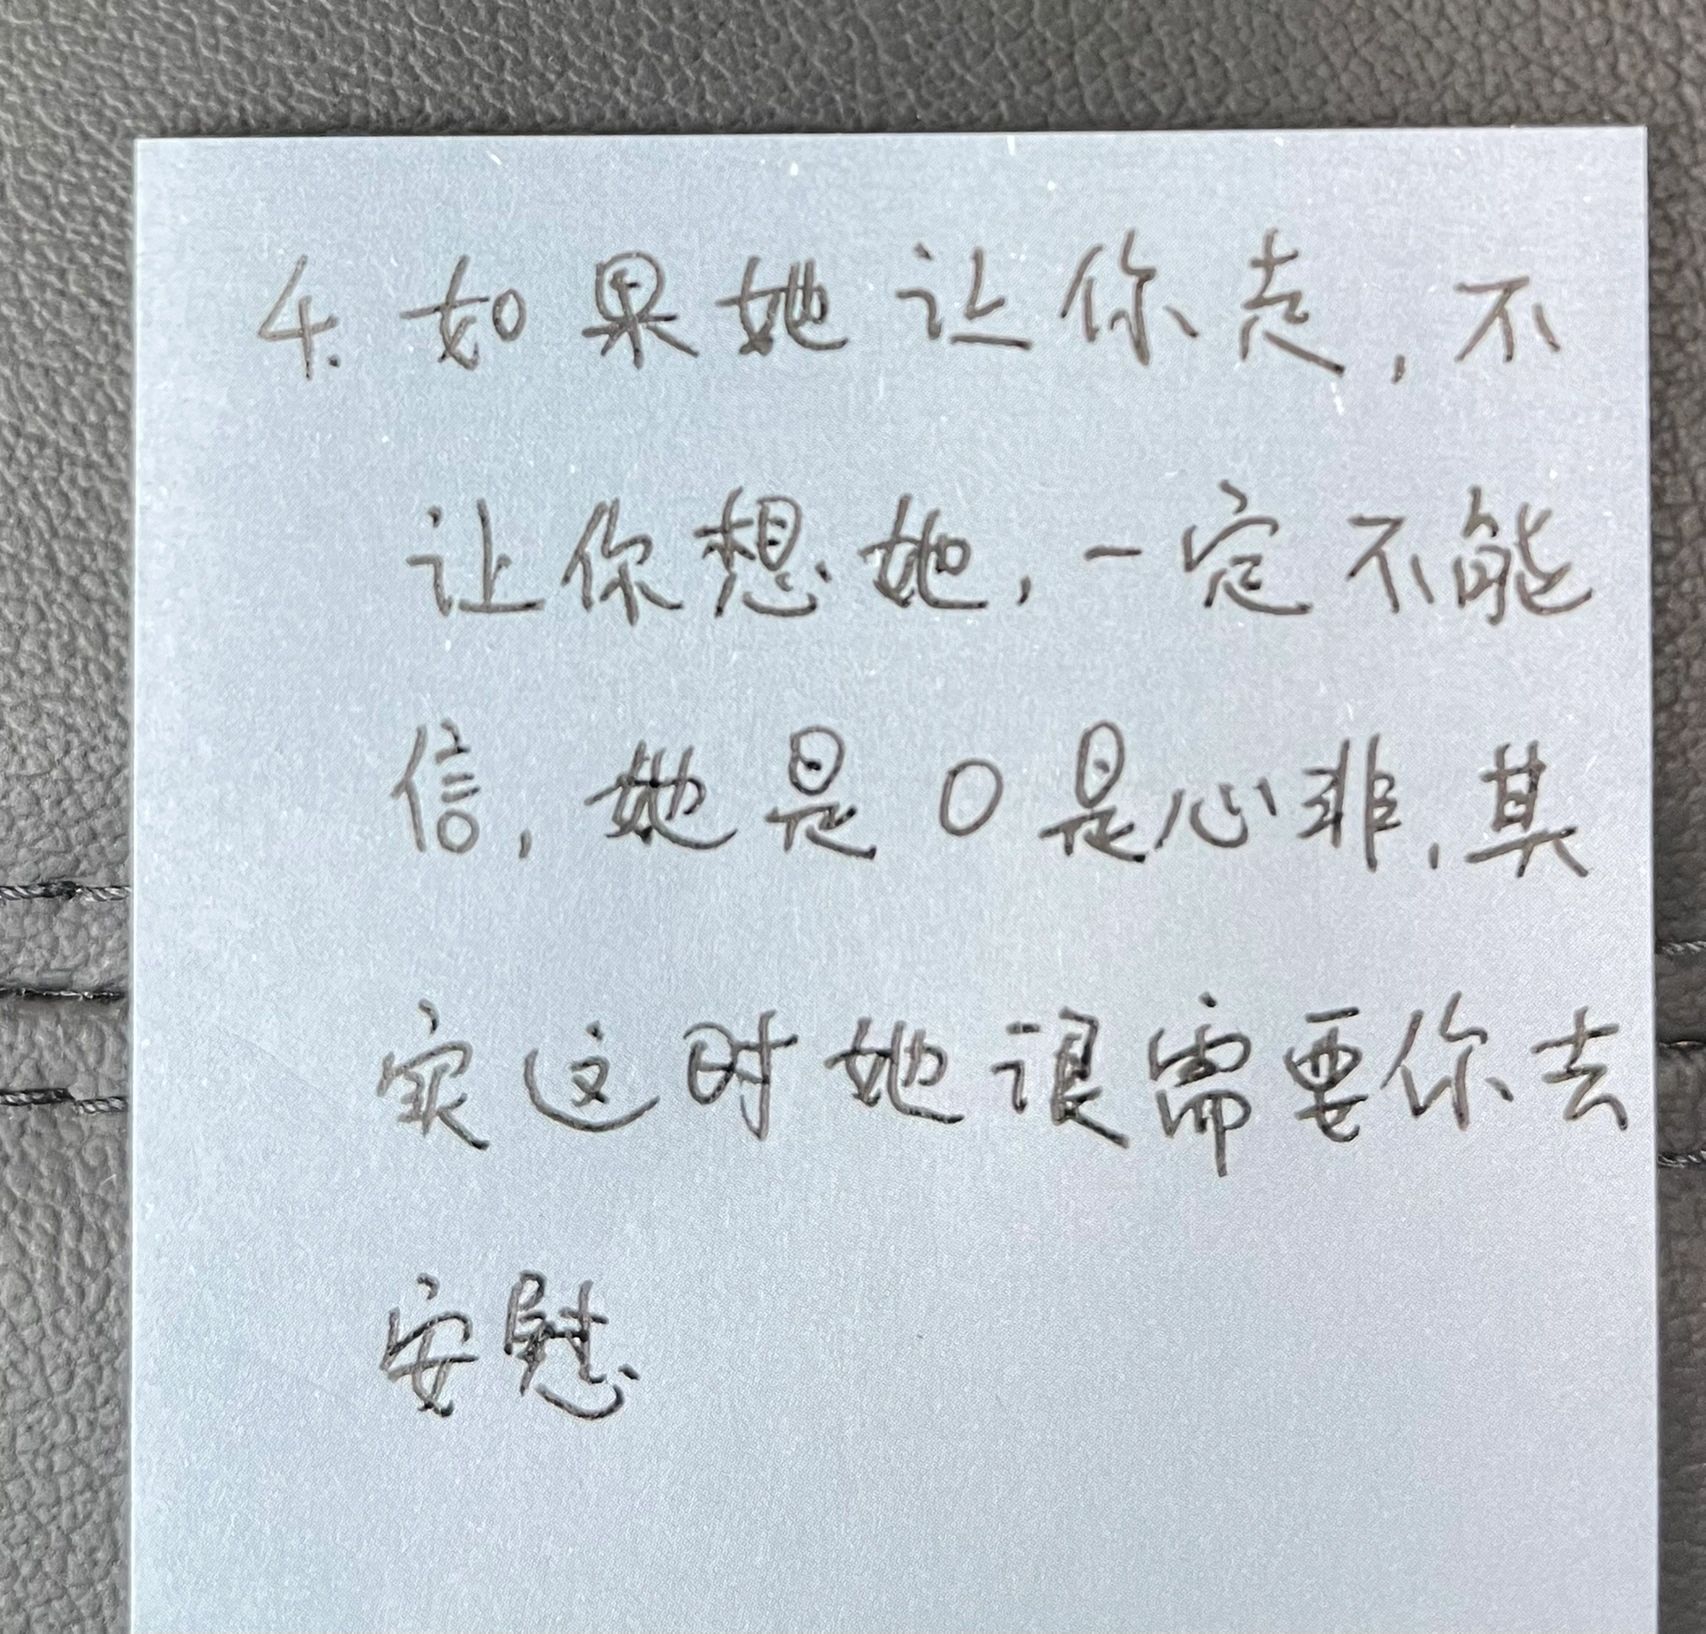 4. 如果她让你走，不
让你想她，一定不能
信，她是口是心非，其
实这时她很需要你去
安慰